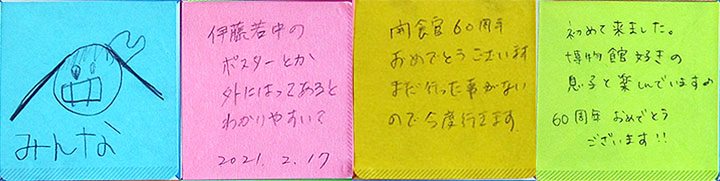 みんな
伊藤若中の
ポスターとか
外にはってあると
わかりやすい?
2021. 2. 17
開館 60周年
おめでとうございます
まだ行った事がない
ので今度行きます
初めて来ました。
博物館好きの
息子と楽しんでいます
60周年 おめでとう
ございます!!